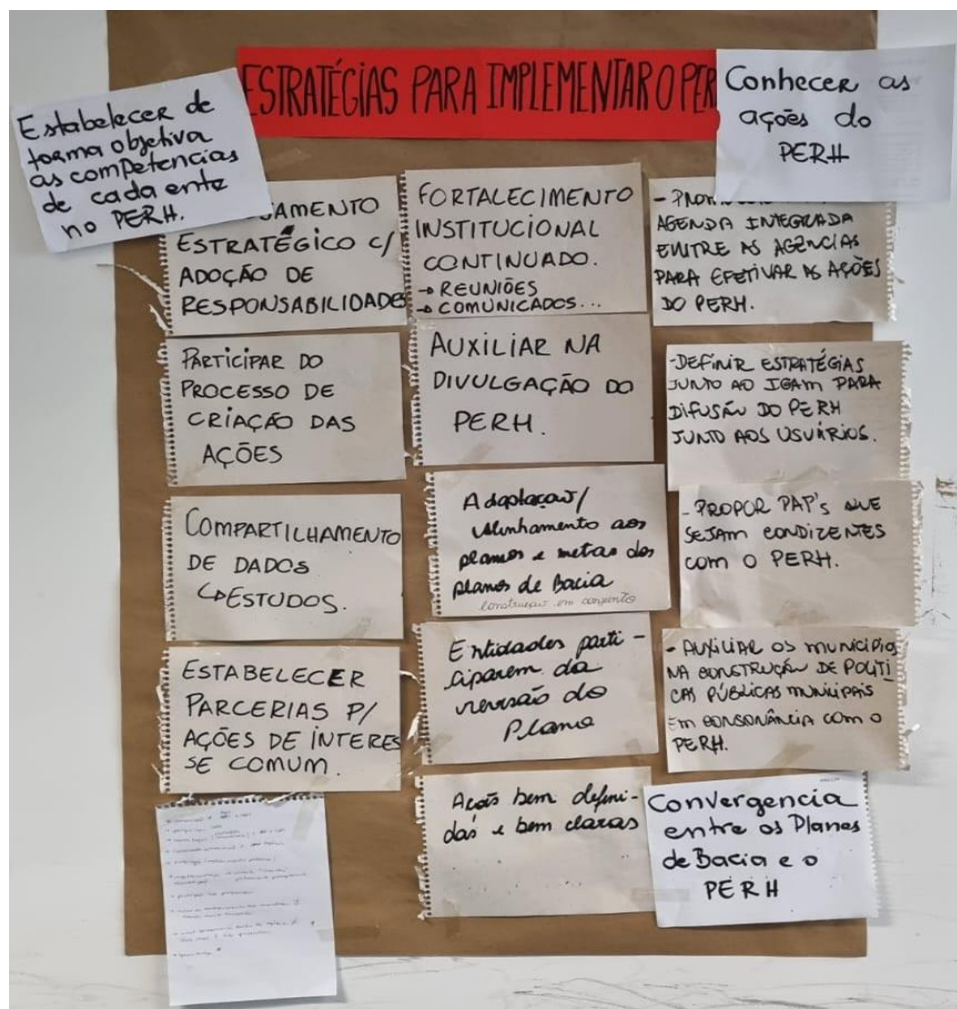 ESTRATÉGIAS PARA IMPLEMENTAR O PER
Estabelecer de
forma objetiva
as competencias
de cada ente
no PERH.
Conhecer as
ações do
PERH
AMENTO
ESTRATÉGICO C/
ADOÇÃO DE
RESPONSABILIDADES
PARTICIPAR DO
PROCESSO DE
CRIAÇÃO DAS
AÇÕES
COMPARTILHAMENTO
DE DADOS
↳ESTUDOS.
ESTABELECER
PARCERIAS P/
AÇÕES DE INTERES
SE COMUM.
FORTALECIMENTO
INSTITUCIONAL
CONTINUADO.
→ REUNIÕES
→ COMUNICADOS...
AUXILIAR NA
DIVULGAÇÃO DO
PERH.
Adaptação/
alinhamento aos
planos e metas dos
planos de Bacia
construção em conjunto
Entidades parti-
ciparem da
revisão do
Plano
Ações bem defini-
das e bem claras
AGENDA INTEGRADA
ENTRE AS AGÊNCIAS
PARA EFETIVAR AS AÇÕES
DO PERH.
-DEFINIR ESTRATÉGIAS
JUNTO AO IGAM PARA
DIFUSÃO DO PERH
JUNTO AOS USUÁRIOS.
- PROPOR PAP's QUE
SEJAM CONDIZENTES
COM O PERH.
- AUXILIAR OS MUNICÍPIOS
NA CONSTRUÇÃO DE POLÍTI
CAS PÚBLICAS MUNICIPAIS
EM CONSONÂNCIA COM O
PERH.
Convergencia
entre os Planes
de Bacia e o
PERH